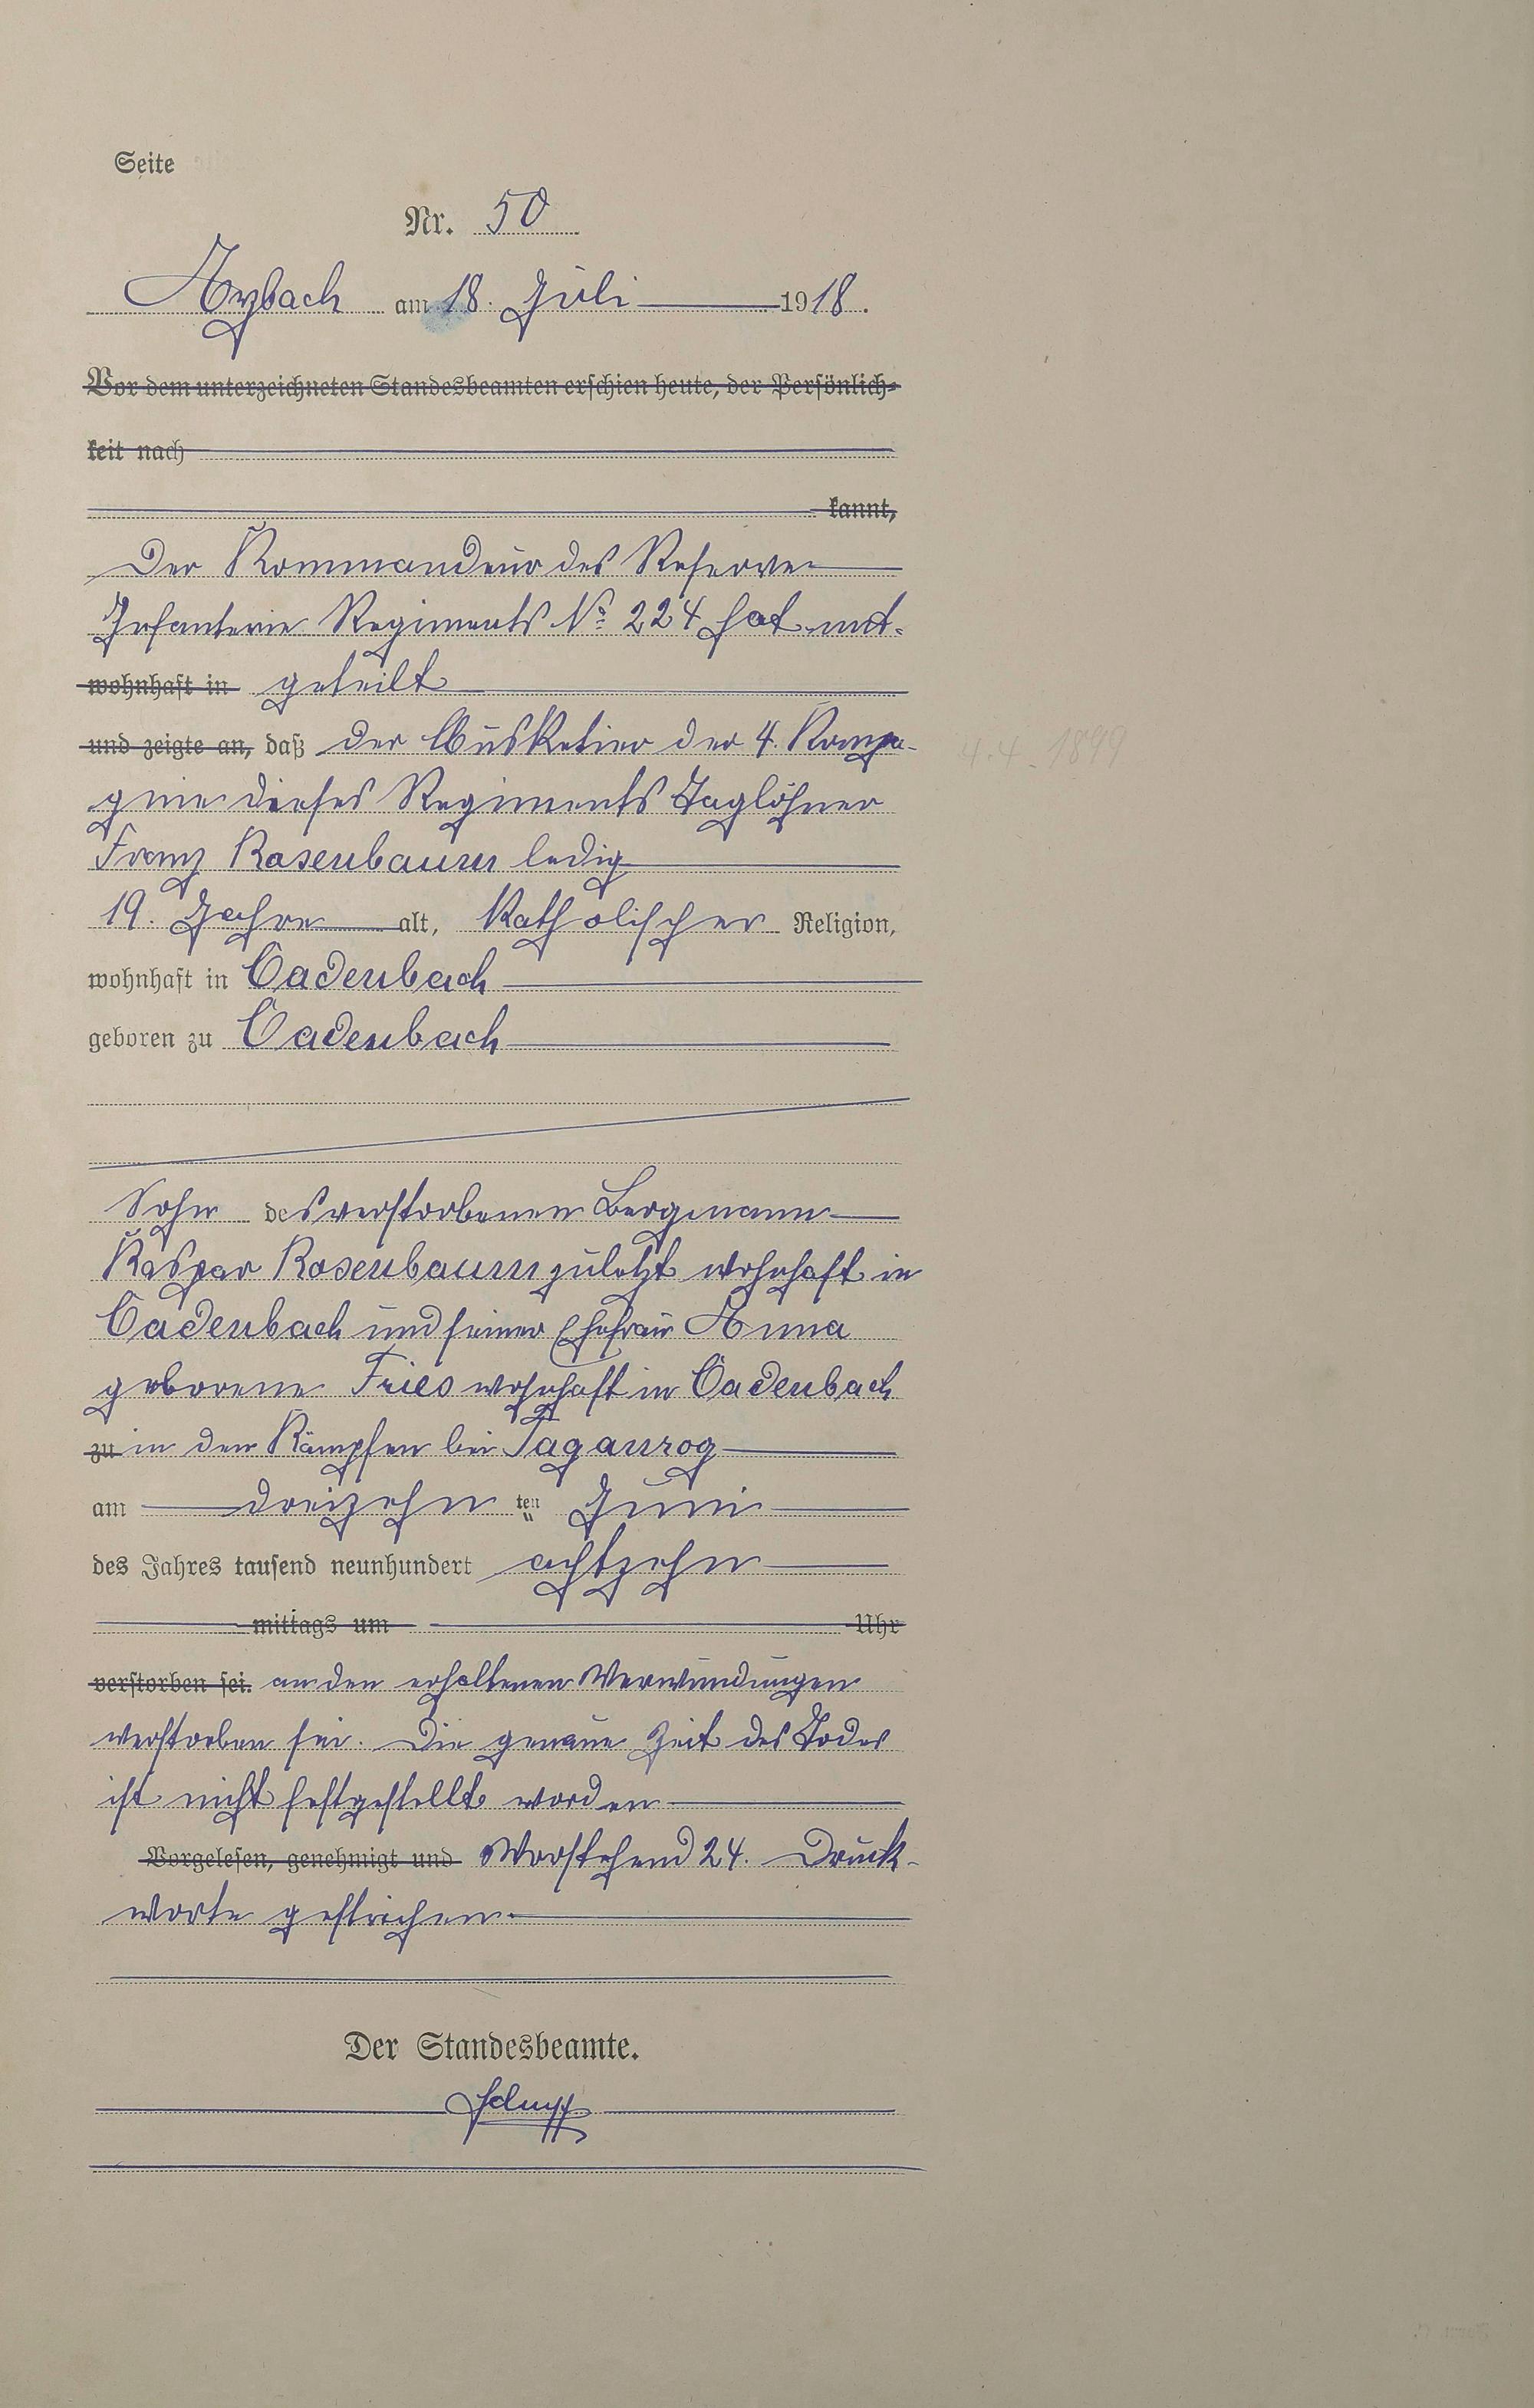 Seite
Nr. 50
Arzbach am 18. Juli 1918.
Vor dem unterzeichneten Standesbeamten erschien heute, der Persönlich-
keit nach
kannt,
Der Kommandeur des Reserve
Infanterie Regiments No 224 hat mit-
wohnhaft in geteilt
und zeigte an, daß der Musketier der 4. Kompa-
gnie dieses Regiments Taglöhner
4.4.1899
Franz Rosenbaum ledig
19. Jahre alt, Katholischer Religion,
wohnhaft in Cadenbach
geboren zu Cadenbach
Sohn des verstorbenen Bergmann
Kaspar Rosenbaum zuletzt wohnhaft in
Cadenbach und seiner Ehefrau Anna
geborene Fries wohnhaft in Cadenbach
zu in den Kämpfen bei Taganrog
am dreizehn ten Juni
des Jahres tausend neunhundert achtzehn
mittags um Uhr
verstorben sei. an den erhaltenen Verwundungen
verstorben sei. Die genaue Zeit des Todes
ist nicht festgestellt worden
Vorgelesen, genehmigt und Vorstehend 24. Druck-
worte gestrichen.
Der Standesbeamte.